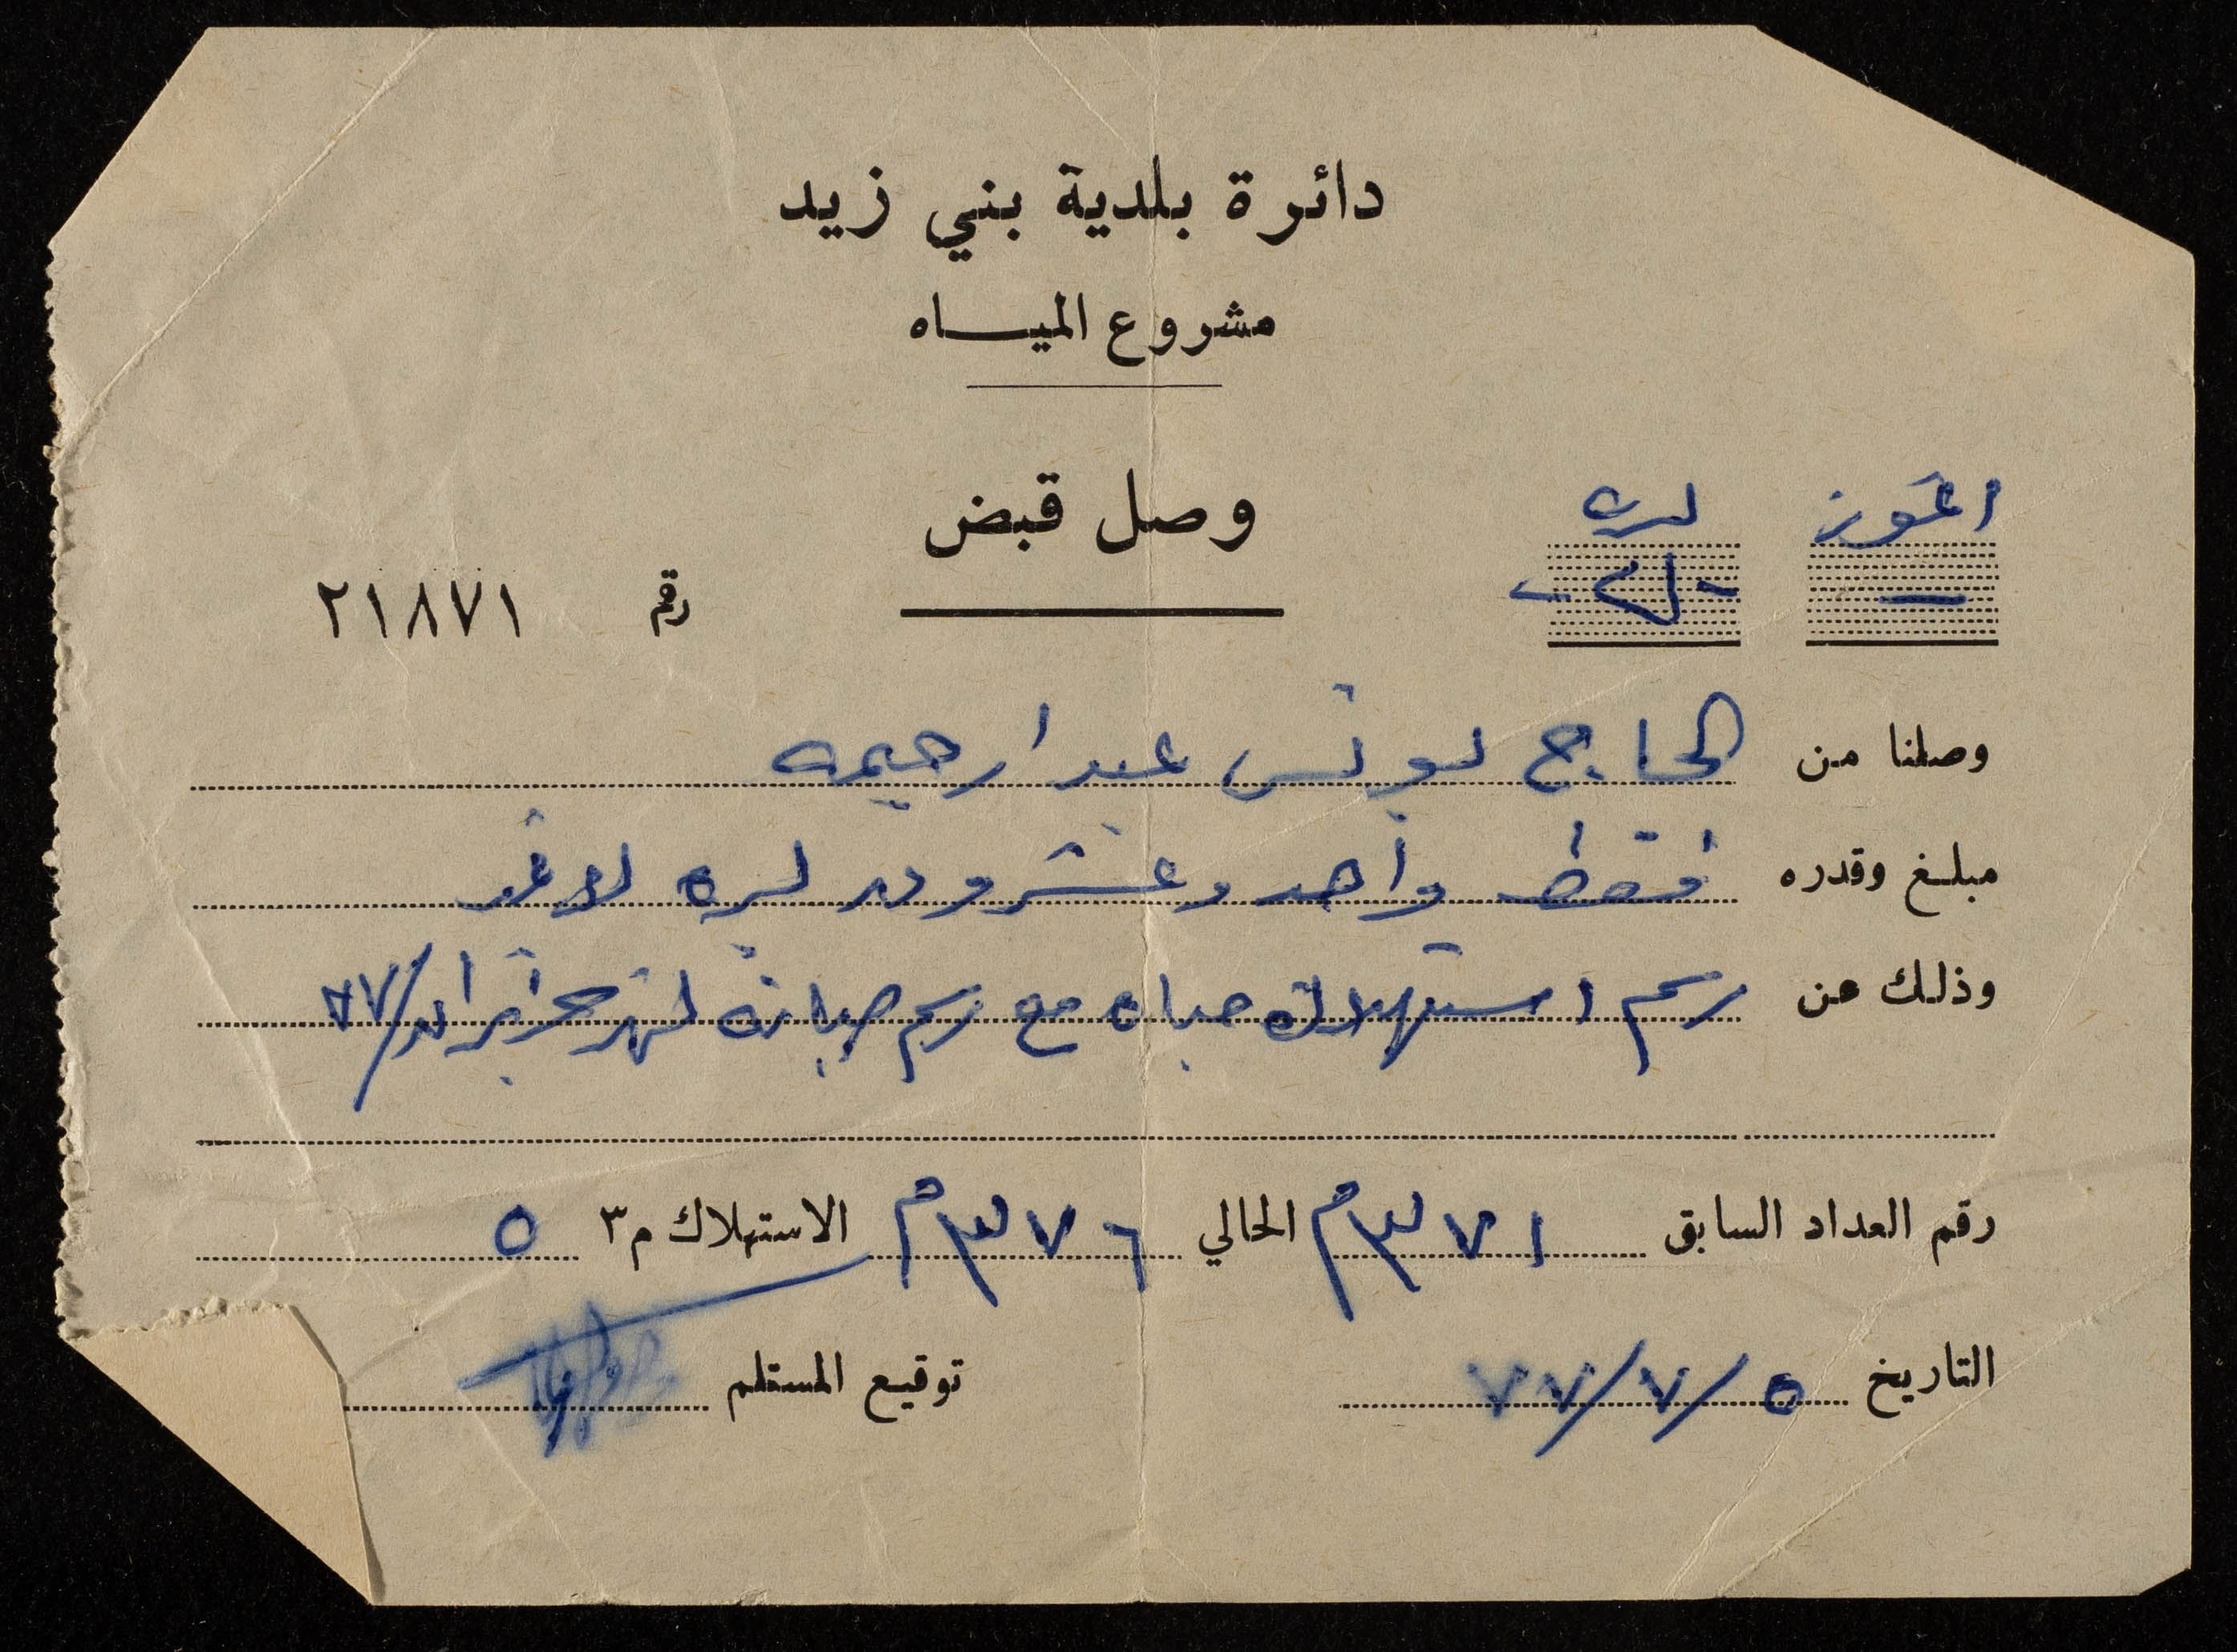 دائرة بلدية بني زيد
مشروع المياه
وصل قبض
اغورة ليره
رقم ٢١٨٧١
وصلنا من الحاج يونس عبد ارحيمه
مبلغ وقدره فقط واحد وعشرون ليره لا غير
وذلك عن رسم استهلاك مياه مع رسم صيانة لشهر حزيران/٧٧
رقم العداد السابق ٣٧١م الحالي ٣٧٦م الاستهلاك م٣ ٥
التاريخ ٥/٧/٧٧ توقيع المستلم